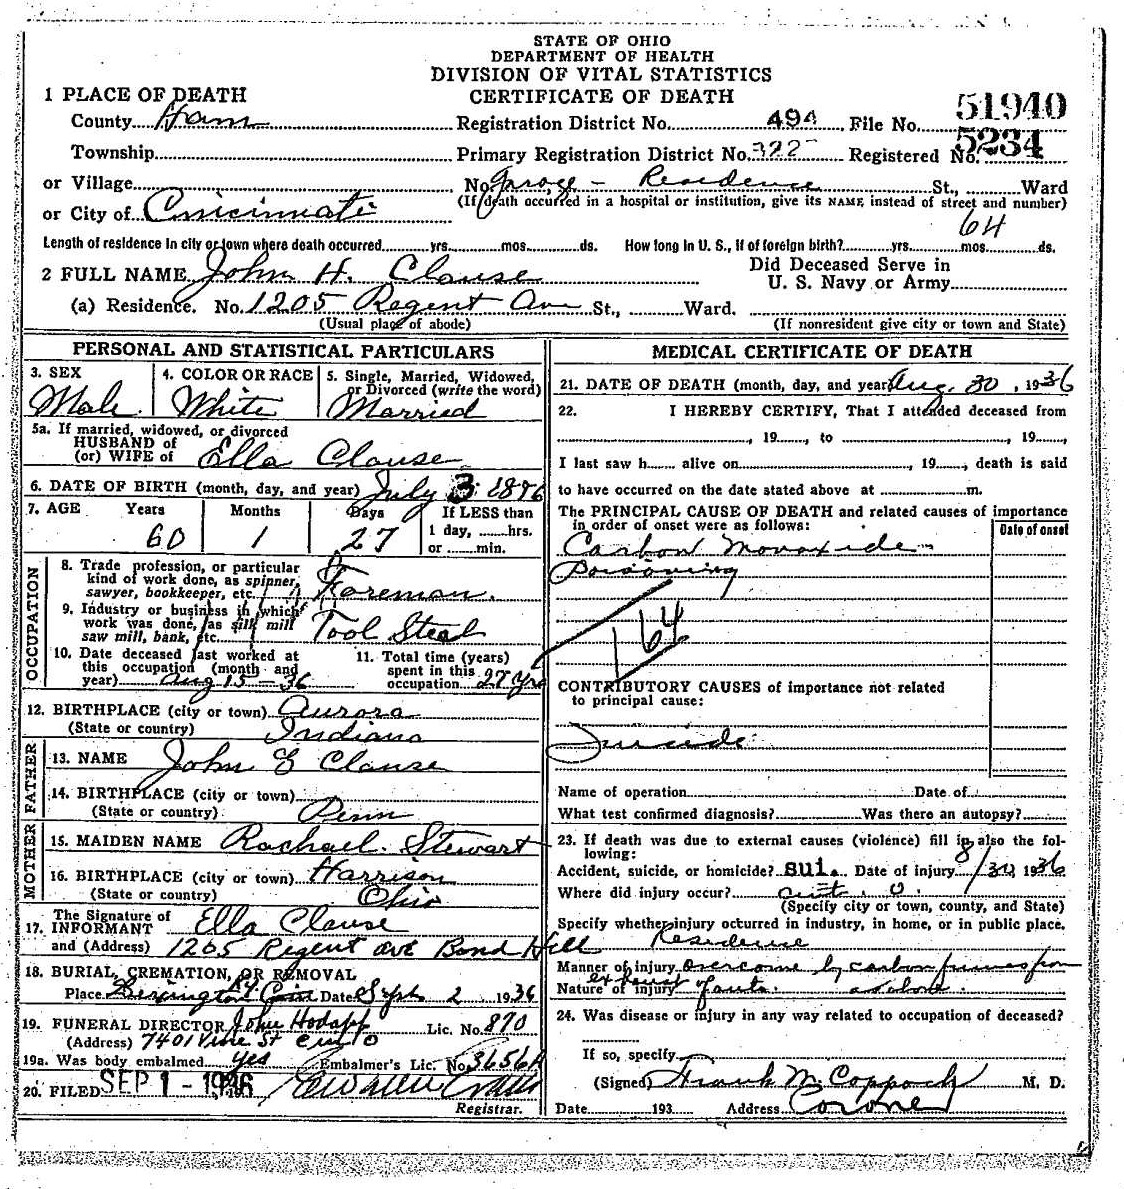 STATE OF OHIO
DEPARTMENT OF HEALTH
DIVISION OF VITAL STATISTICS
CERTIFICATE OF DEATH
1 PLACE OF DEATH
County Ham
Registration District No. 494 File No. 51940
Township
Primary Registration District No. 322 Registered No. 5234
or Village
No. Garage - Residence St., Ward
or City of Cincinnati
(If death occurred in a hospital or institution, give its NAME instead of street and number)
64
Length of residence in city or town where death occurred yrs. mos. ds. How long in U. S., if of foreign birth? yrs. mos. ds.
2 FULL NAME John H. Clause
Did Deceased Serve in
U. S. Navy or Army
(a) Residence. No. 1205 Regent Ave St., Ward.
(Usual place of abode) (If nonresident give city or town and State)
PERSONAL AND STATISTICAL PARTICULARS
3. SEX Male
4. COLOR OR RACE White
5. Single, Married, Widowed, or Divorced (write the word) Married
5a. If married, widowed, or divorced
HUSBAND of
(or) WIFE of Ella Clause
6. DATE OF BIRTH (month, day, and year) July 3 1876
7. AGE Years Months Days If LESS than
60 1 27 1 day, hrs.
or min.
OCCUPATION
8. Trade profession, or particular
kind of work done, as spinner,
sawyer, bookkeeper, etc. Foreman.
9. Industry or business in which
work was done, as silk mill
saw mill, bank, etc. Tool Steel
10. Date deceased last worked at
this occupation (month and
year) Aug 15 - 36
11. Total time (years)
spent in this
occupation 27 yrs
12. BIRTHPLACE (city or town) Aurora
(State or country) Indiana
FATHER
13. NAME John E Clause
14. BIRTHPLACE (city or town)
(State or country) Penn
MOTHER
15. MAIDEN NAME Rachael Stewart
16. BIRTHPLACE (city or town) Harrison
(State or country) Ohio
17. The Signature of
INFORMANT Ella Clause
and (Address) 1205 Regent ave Bond Hill
18. BURIAL, CREMATION, OR REMOVAL
Ky.
Place Date Sept 2 1936
19. FUNERAL DIRECTOR John Hodapp Lic. No. 870
(Address) 7401 Vine St
19a. Was body embalmed yes Embalmer's Lic. No. 3656A
20. FILED SEP 1 - 1936
Registrar.
MEDICAL CERTIFICATE OF DEATH
21. DATE OF DEATH (month, day, and year) Aug. 30, 1936
22. I HEREBY CERTIFY, That I attended deceased from
, 19 , to , 19 ,
I last saw h alive on , 19 , death is said
to have occurred on the date stated above at m.
The PRINCIPAL CAUSE OF DEATH and related causes of importance
in order of onset were as follows: Date of onset
Carbon Monoxide
Poisoning
164
CONTRIBUTORY CAUSES of importance not related
to principal cause:
Suicide
Name of operation Date of
What test confirmed diagnosis? Was there an autopsy?
23. If death was due to external causes (violence) fill in also the following:
Accident, suicide, or homicide? sui. Date of injury 8/30 1936
Where did injury occur? Cint. O.
(Specify city or town, county, and State)
Specify whether injury occurred in industry, in home, or in public place.
Residence
Manner of injury overcome by carbon fumes from
Nature of injury exhaust
24. Was disease or injury in any way related to occupation of deceased?
If so, specify
(Signed) Frank M. Coppock M. D.
Date 193 Address Coroner